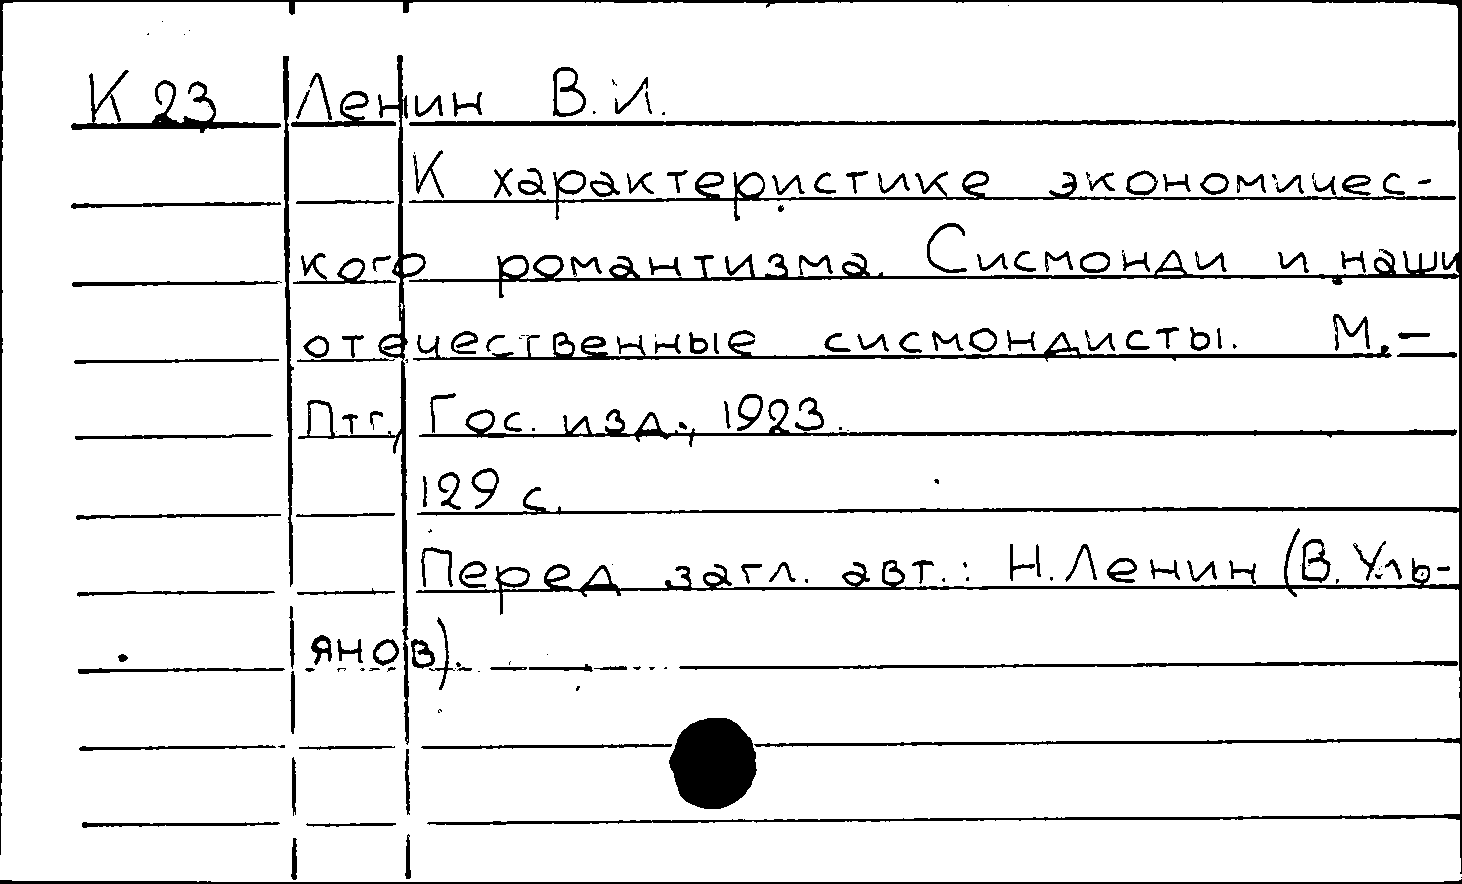 К 23 Ленин В.И.
К характеристике экономичес-
кого романтизма. Сисмонди и наши
отечественные сисмондисты. М.-
Птг., Гос. изд., 1923.
129 с.
Перед загл. авт.: Н.Ленин (В. Уль-
янов).